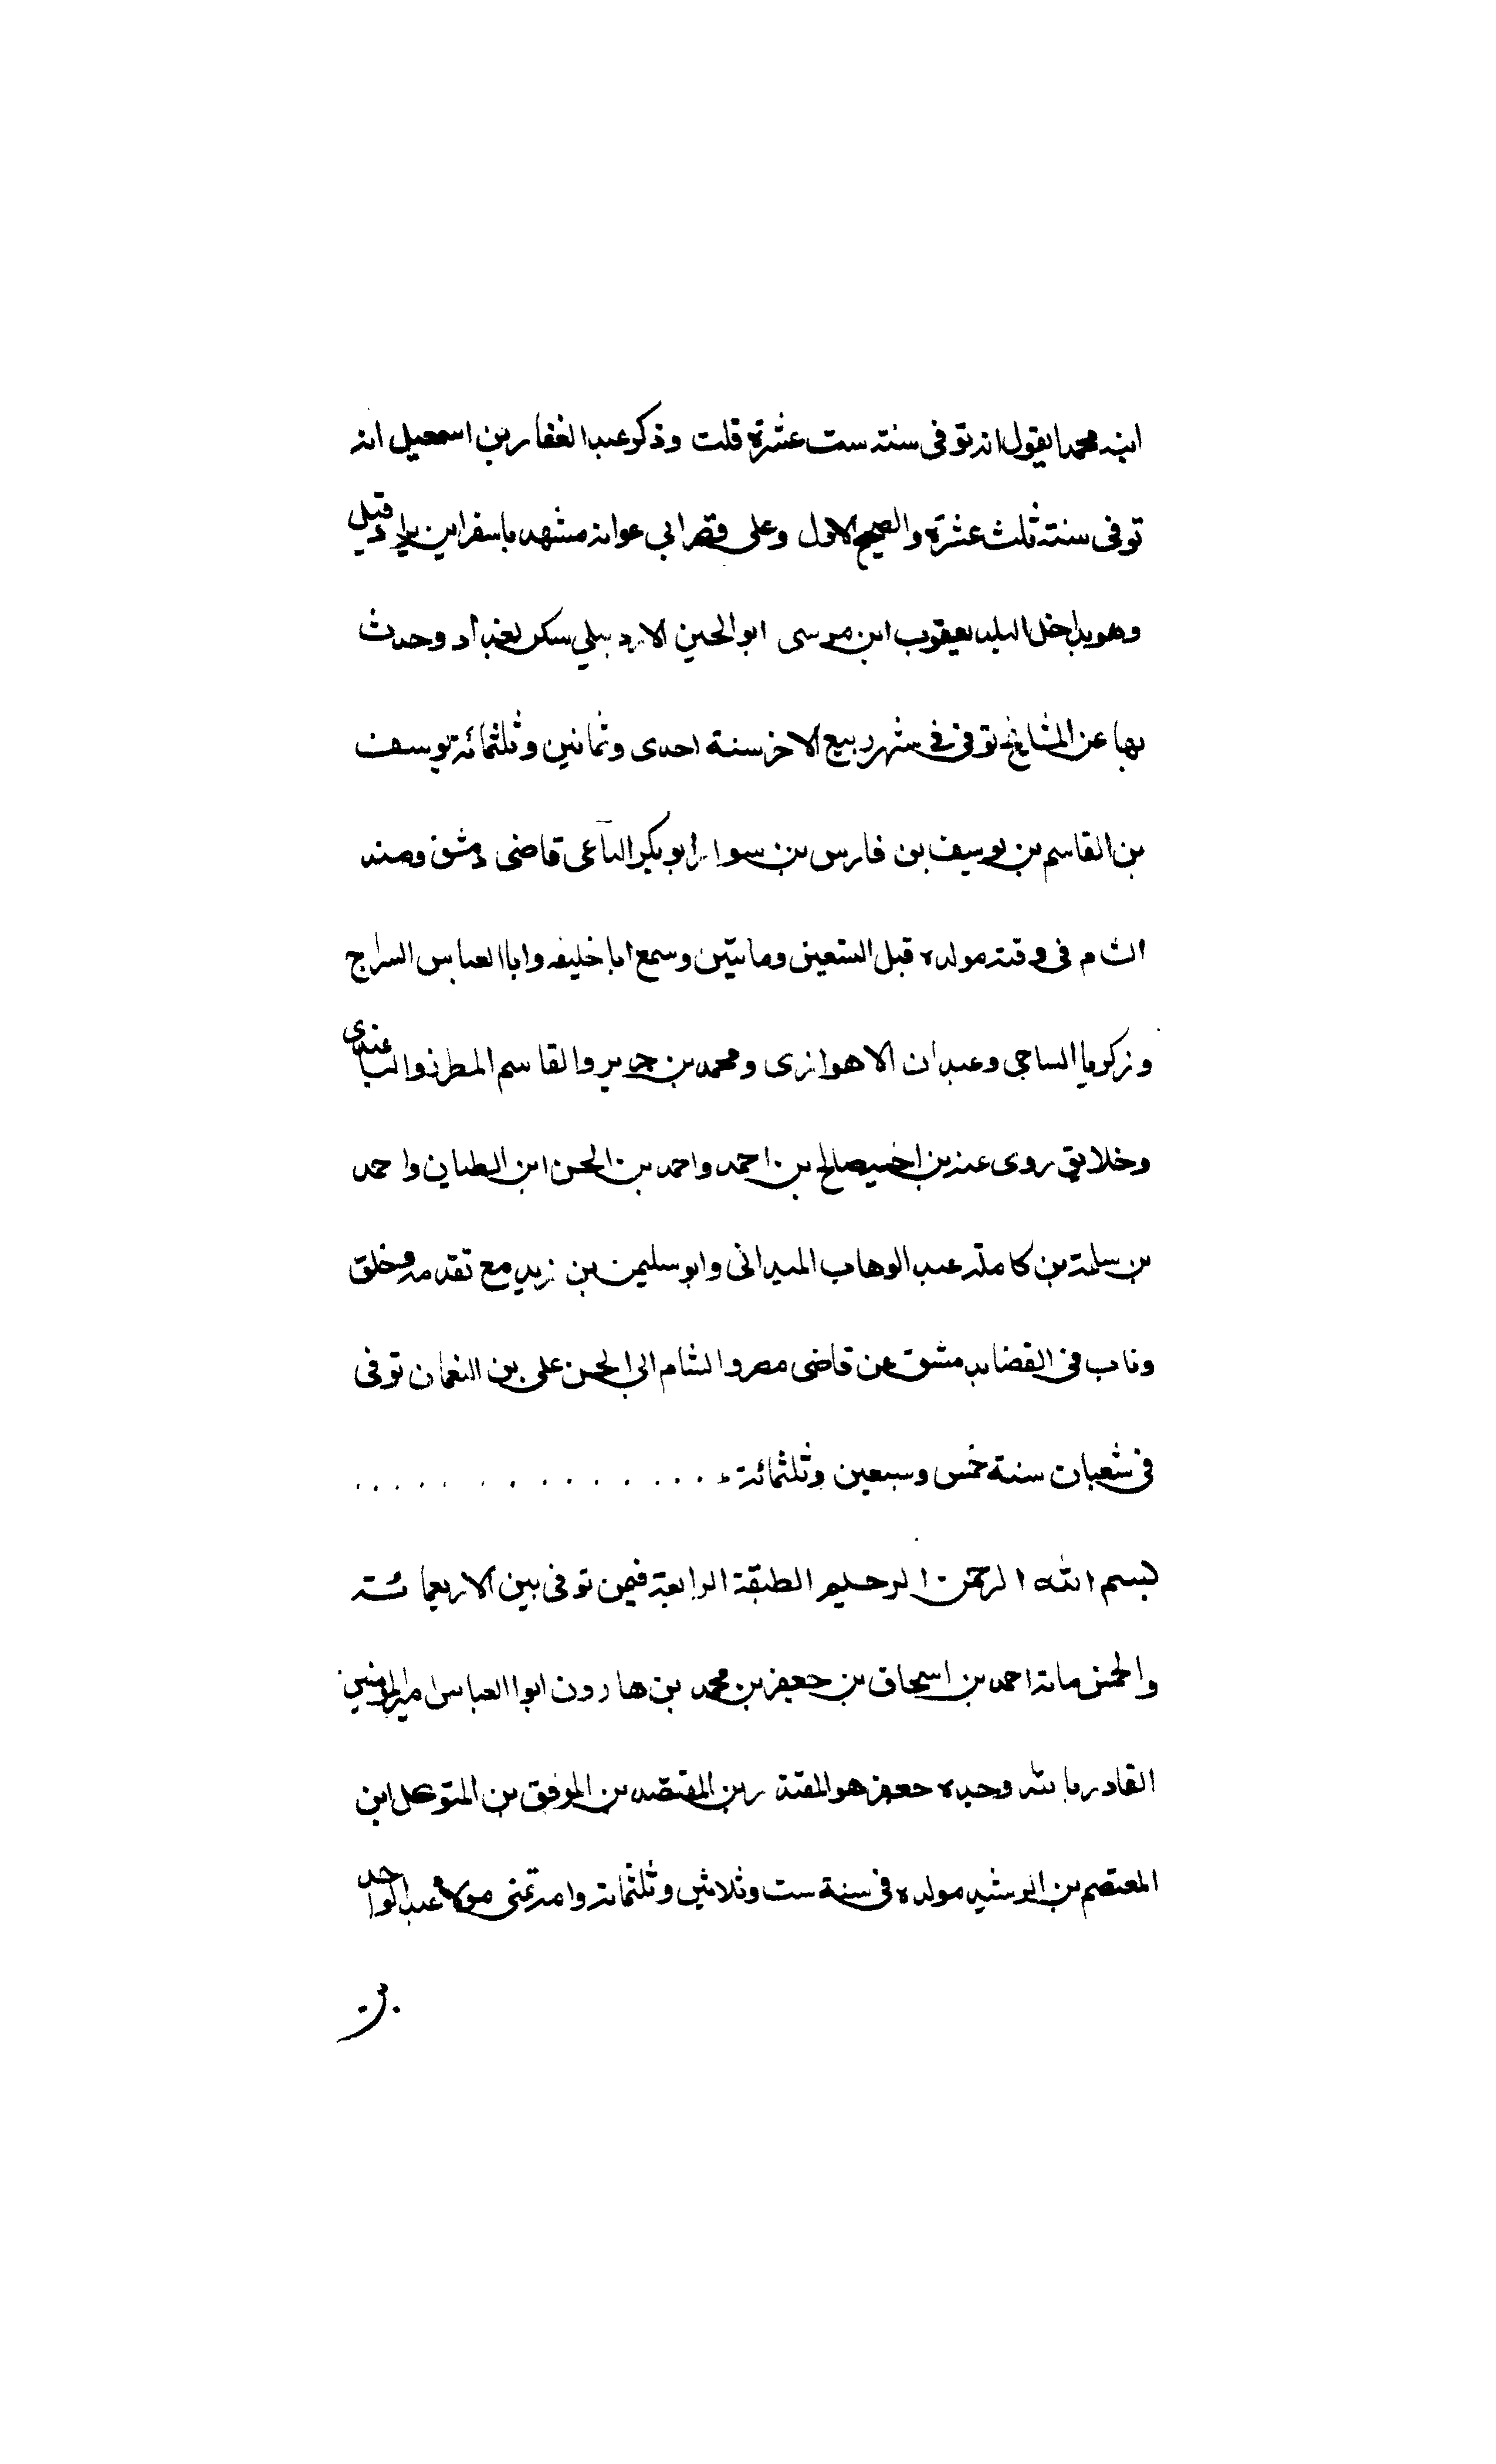 ابنه محمدا يقول انه توفى سنته ست عشرة قلت وذكر عبد الغفار بن اسمعيل انه
توفى سنته ثلث عشرة والصحيح الاول وعلى قبر ابي عوانه مشهد باسفراين يزار قيل
وهو بداخل البلد يعقوب ابن موسى ابو الحسين الاردبيلي سكن بغداد وحدث
بها عن المشايخ توفى في شهر ربيع الاخر سنة احدى وثمانين وثلثمائة يوسف
بن القاسم بن يوسف بن فارس بن سوار ابو بكر قاضى دمشق ومسند
الشام فى وقته مولده قبل التسعين وماتيين وسمع ابا خليفه وابا العباس السراج
وزكريا الساجى وعبدان الاهوازى ومحمد بن جرير والقاسم المطرز والباغندى
وخلايق روى عنه بن اخيه صالح بن احمد واحمد بن الحسن ابن الطيان واحمد
بن سلمة بن كامله عبد الوهاب الميدانى وابو سليمن بن زيد مع تقدمه وخلق
وناب فى القضا بدمشق عن قاضى مصر والشام ابى الحسن على بن النعمان توفى
فى شعبان سنة خمس وسبعين وثلثمائة
بسم الله الرحمن الرحيم الطبقة الرابعة فيمن توفى بين الاربعمائته
والخمس ماته احمد بن اسحاق بن جعفر بن محمد بن هارون ابوا العباس امير المومنين
القادر بالله وجده جعفر هو المقتدر بن المعتضد بن الموفق بن المتوكل ابن
المعتصم بن الرشيد مولده فى سنة ست وثلاثين وثلثماته وامه تمنى مولاة عبد الواحد
بن